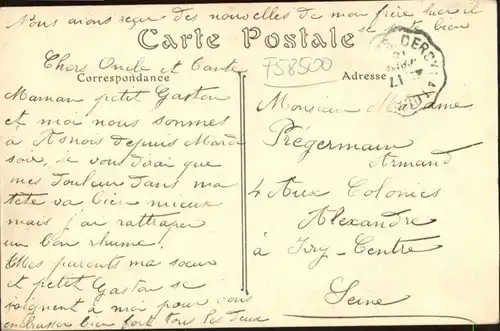 Nous avions reçu des nouvelles de mon frère hier il
se porte bien
Carte Postale
Chers Oncle et Tante
Correspondance
Adresse
F58500
CERCY
Maman petit Gaston
et moi nous sommes
à Asnois depuis Mardi
soir, je vous dirai que
mes douleur dans ma
tête va bien mieux
mais j'ai rattraper
un bon rhume.
Mes parents ma sœur
et petit Gaston se
joignent à moi pour vous
embrasser bien fort tous les deux
Monsieur Madame
Prégermain
Armand
4 Aux Colonies
Alexandre
à Ivry-Centre
Seine